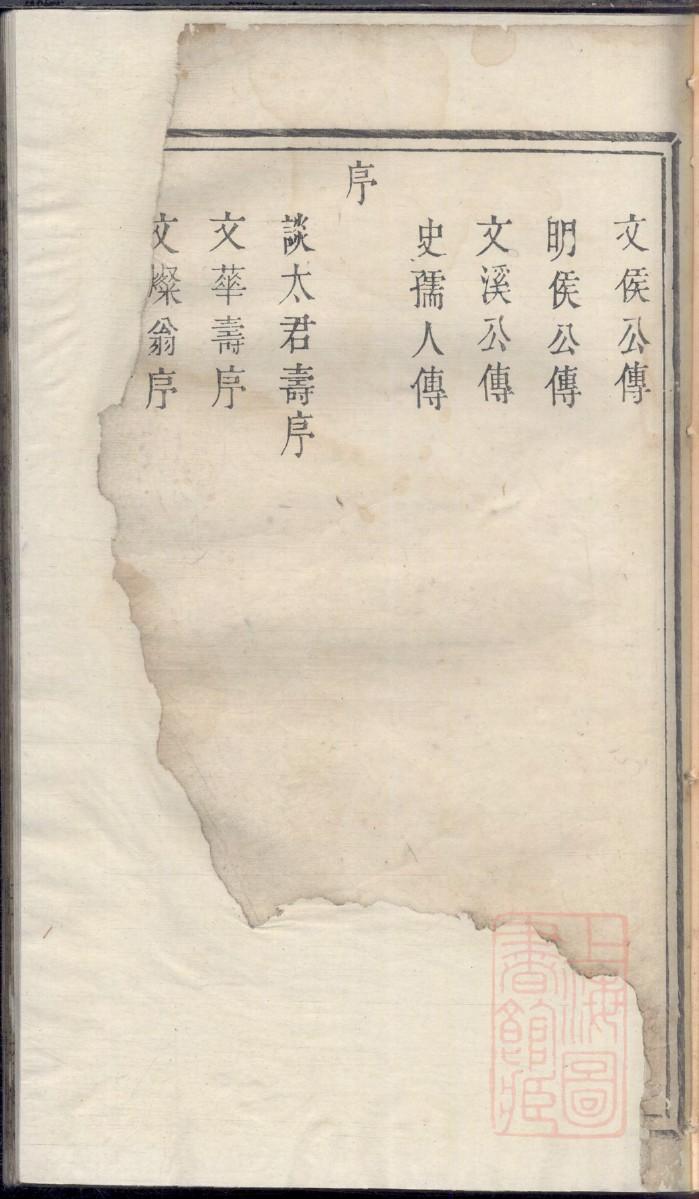 文侯公傳
明侯公傳
文溪公傳
史孺人傳
序
談太君壽序
文華壽序
文燦翁序
上海圖書館藏